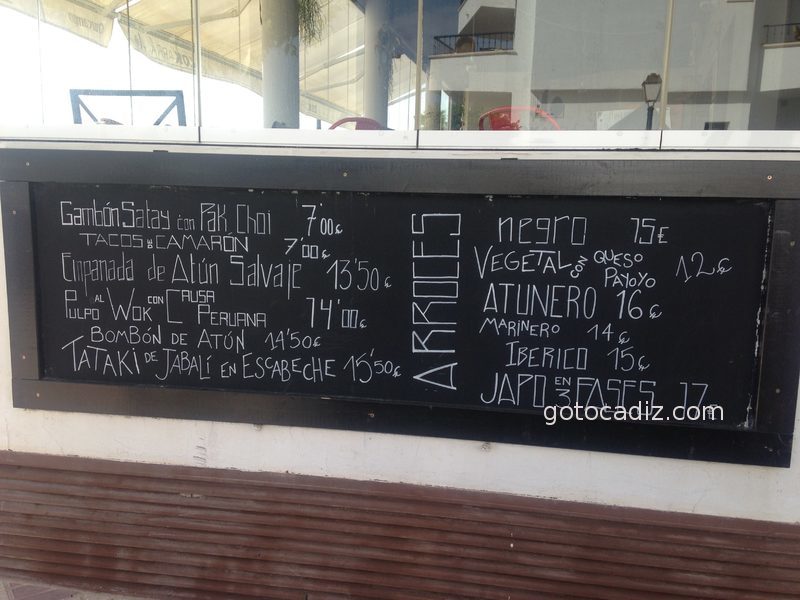 Gambón Satay con Pak Choi 7'00€
TACOS de CAMARÓN 7'00€
Empanada de Atún Salvaje 13'50€
PULPO AL WOK CON CAUSA
PERUANA 14'00€
BOMBÓN DE ATÚN 14'50€
TATAKI DE JABALÍ EN ESCABECHE 15'50€
ARROCES
negro 15€
VEGETAL CON QUESO
PAYOYO 12€
ATUNERO 16€
MARINERO 14€
IBERICO 15€
JAPO EN 3 FASES 17
gotocadiz.com